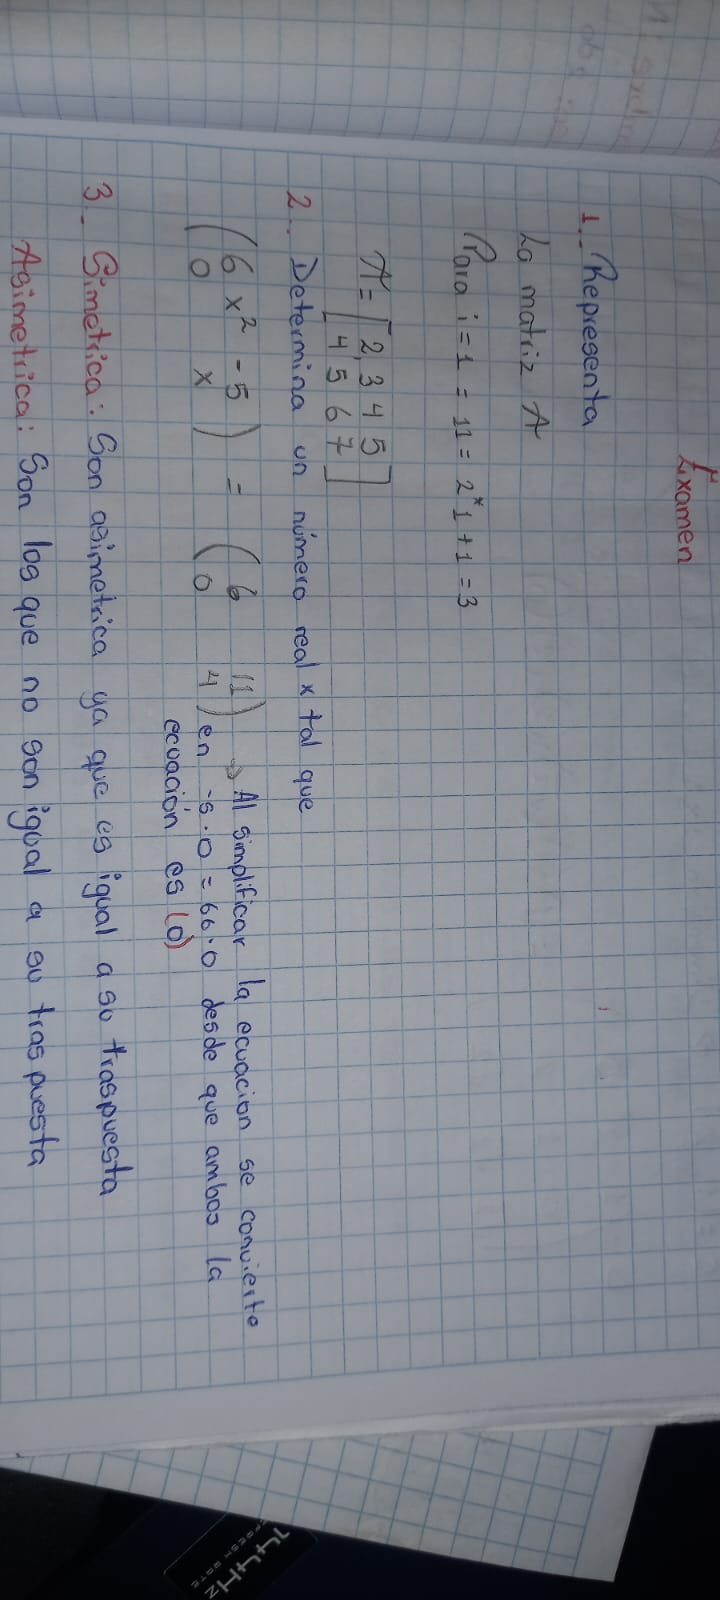 Examen
1.. Representa
La matriz A
Para i=1 = 11 = 2*1+1=3
A = [2,3 4 5
4 5 6 7]
2.. Determina un número real x tal que
(6 x² -5
0 x) = (6 11
0 4) → Al simplificar la ecuacion se convierte
en -5·0 = 66·0 desde que ambos la
ecuación es (0)
3.. Simetrica: Son asimetrica ya que es igual a su traspuesta
Asimetrica: Son los que no son igual a su traspuesta
144Hz
REFRESH RATE